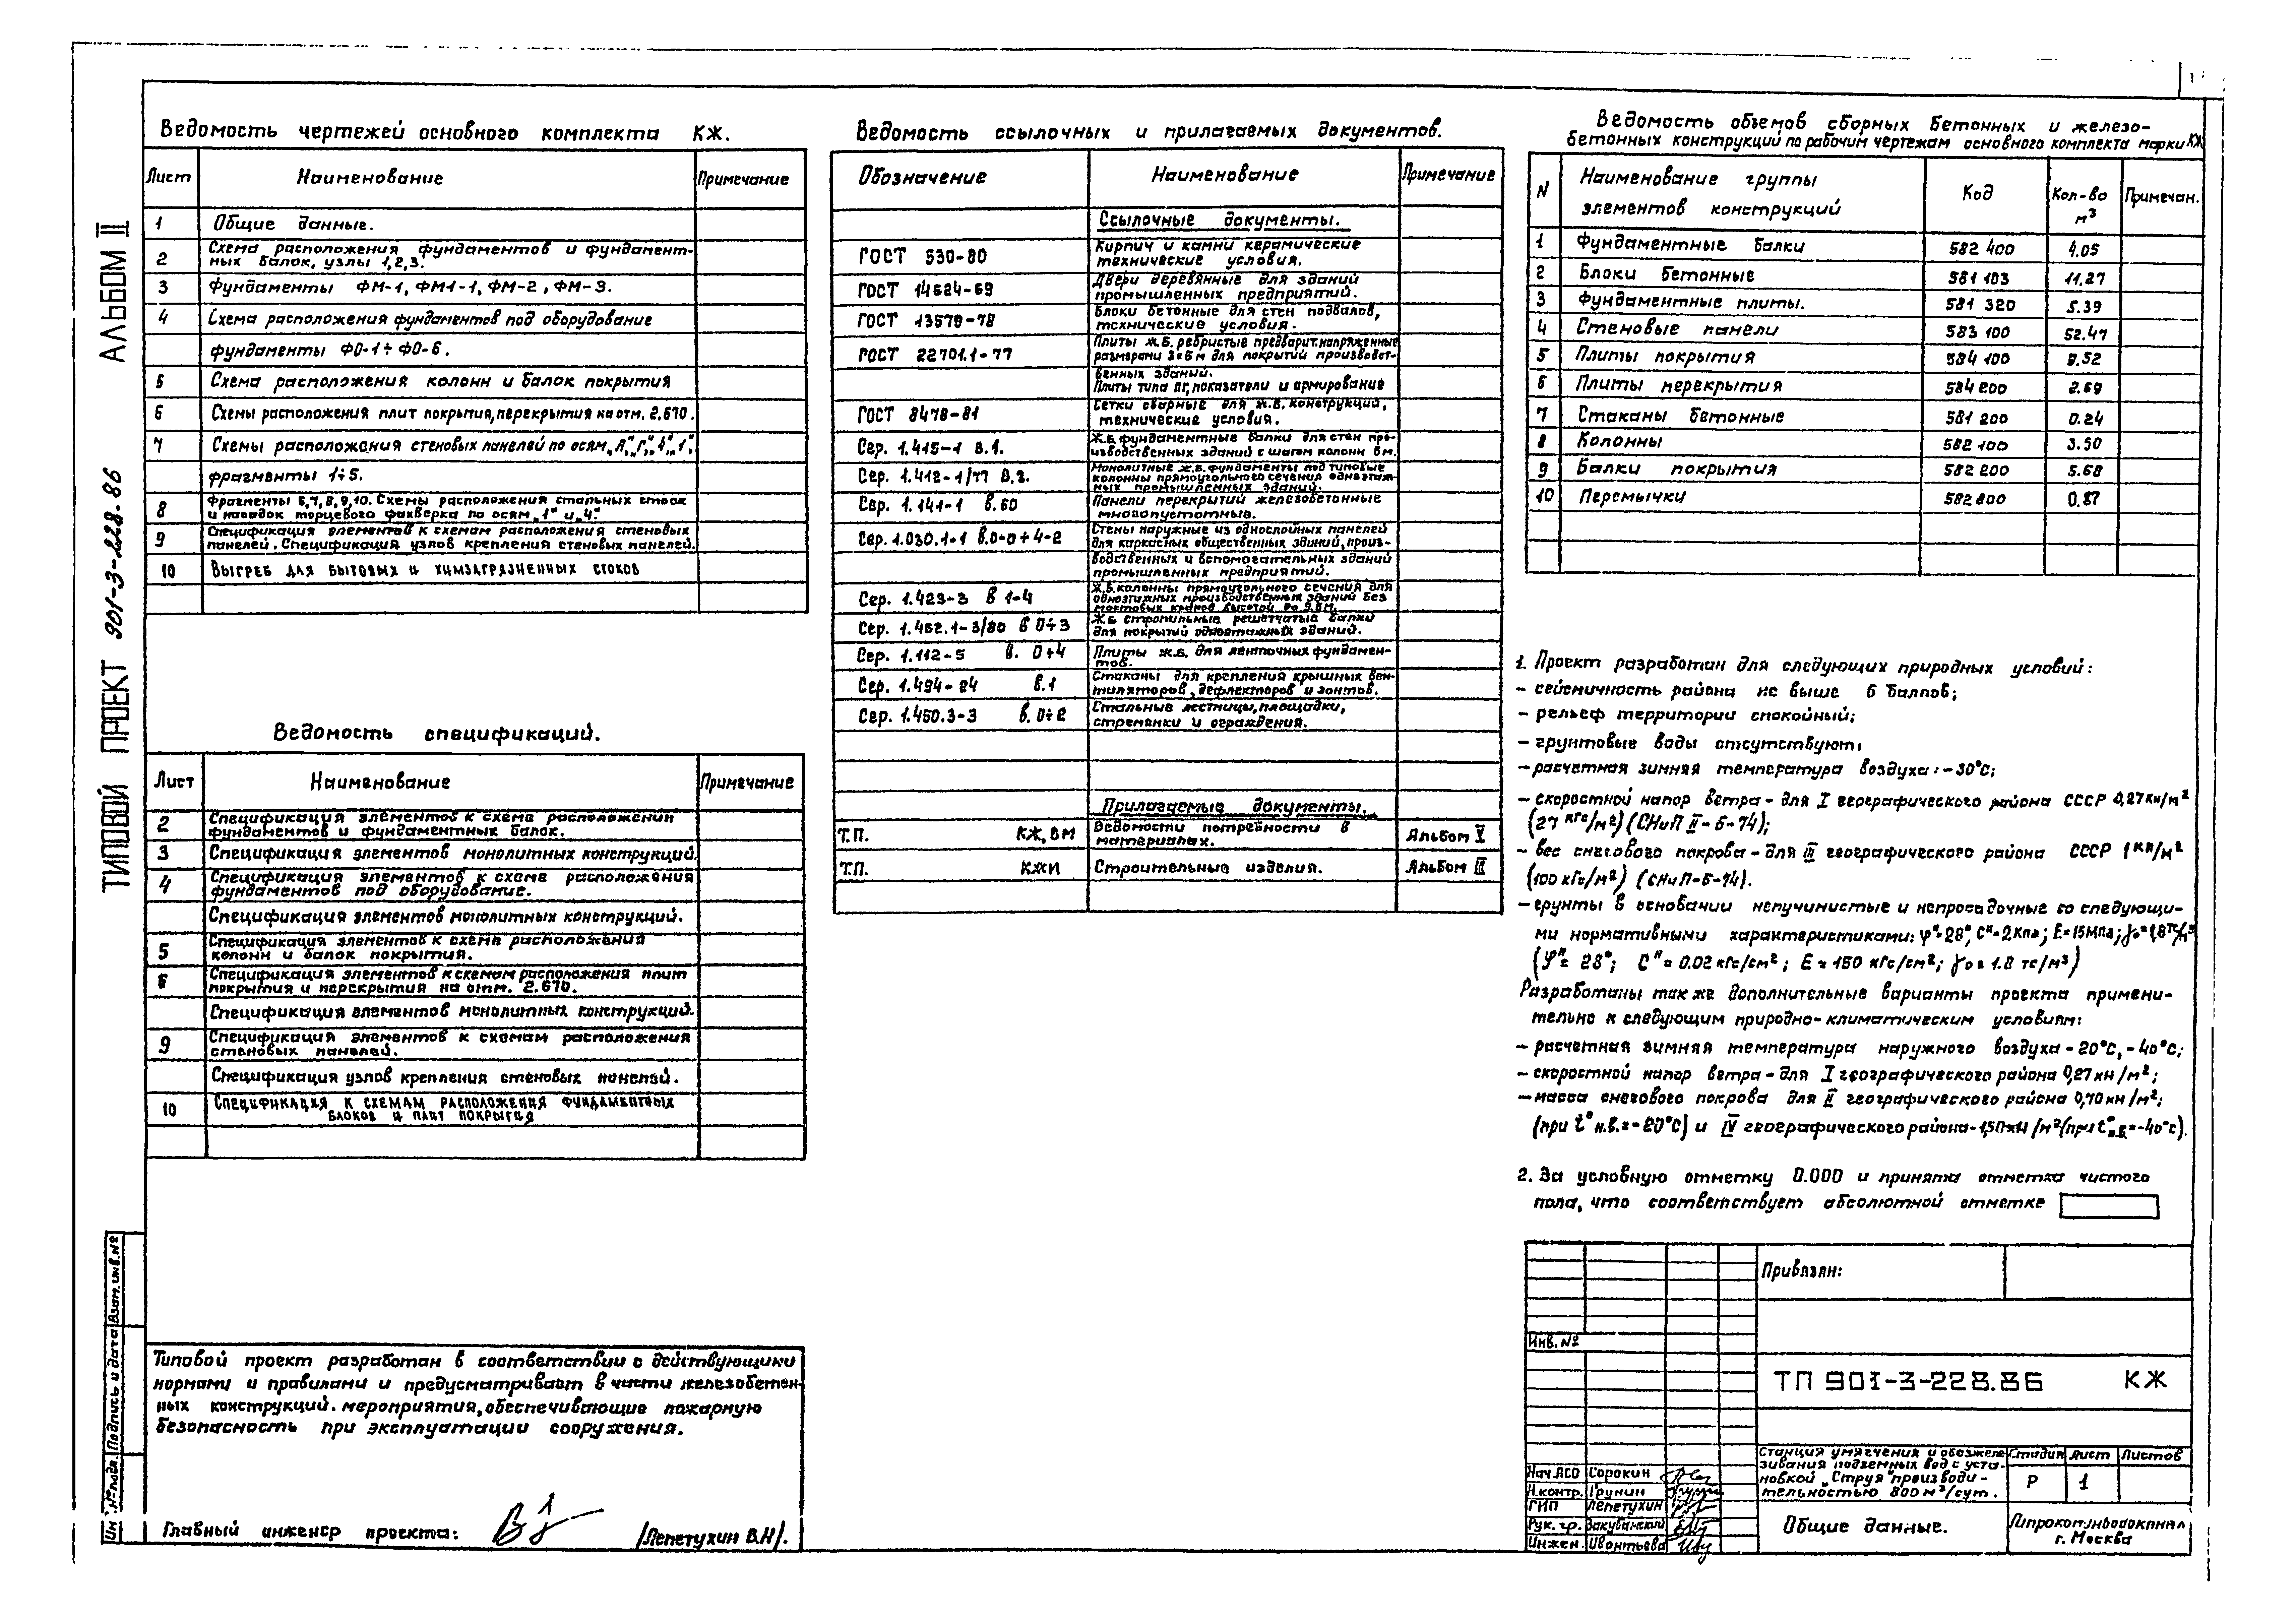 АЛЬБОМ II
ТИПОВОЙ ПРОЕКТ 901-3-228.86
Ведомость чертежей основного комплекта КЖ.
Лист Наименование Примечание
1 Общие данные.
Схема расположения фундаментов и фундамент-
2 ных балок, узлы 1,2,3.
3 Фундаменты ФМ-1, ФМ1-1, ФМ-2, ФМ-3.
4 Схема расположения фундаментов под оборудование
фундаменты ФО-1÷ФО-6.
5 Схема расположения колонн и балок покрытия
6 Схемы расположения плит покрытия, перекрытия на отм. 2.670.
7 Схемы расположения стеновых панелей по осям „А", „Г", „4", „1",
фрагменты 1÷5.
Фрагменты 6,7,8,9,10. Схемы расположения стальных стоек
8 и насадок торцевого фахверка по осям „1" и „4".
Спецификация элементов к схемам расположения стеновых
9 панелей. Спецификация узлов крепления стеновых панелей.
10 Выгреб для бытовых и химзагрязненных стоков
Ведомость спецификаций.
Лист Наименование Примечание
Спецификация элементов к схеме расположения
2 фундаментов и фундаментных балок.
3 Спецификация элементов монолитных конструкций.
Спецификация элементов к схеме расположения
4 фундаментов под оборудование.
Спецификация элементов монолитных конструкций.
Спецификация элементов к схеме расположения
5 колонн и балок покрытия.
Спецификация элементов к схемам расположения плит
6 покрытия и перекрытия на отм. 2.670.
Спецификация элементов монолитных конструкций.
Спецификация элементов к схемам расположения
9 стеновых панелей.
Спецификация узлов крепления стеновых панелей.
Спецификация к схемам расположения фундаментных
10 блоков и плит покрытия
Типовой проект разработан в соответствии с действующими
нормами и правилами и предусматривает в части железобетон-
ных конструкций. мероприятия, обеспечивающие пожарную
безопасность при эксплуатации сооружения.
Главный инженер проекта: /Лепетухин В.Н/.
Инв.№подл. Подпись и дата Взам. инв.№
Ведомость ссылочных и прилагаемых документов.
Обозначение Наименование Примечание
Ссылочные документы.
ГОСТ 530-80 Кирпич и камни керамические
технические условия.
ГОСТ 14624-69 Двери деревянные для зданий
промышленных предприятий.
ГОСТ 13579-78 Блоки бетонные для стен подвалов,
технические условия.
ГОСТ 22701.1-77 Плиты ж.б. ребристые предварит.напряженные
размерами 3х6м для покрытий производст-
венных зданий.
Плиты типа ПГ, показатели и армирование
ГОСТ 8478-81 Сетки сварные для ж.б. конструкций,
технические условия.
Сер. 1.415-1 в.1. Ж.б. фундаментные балки для стен про-
изводственных зданий с шагом колонн 6м.
Сер. 1.412-1/77 в.3. Монолитные ж.б. фундаменты под типовые
колонны прямоугольного сечения одноэтаж-
ных промышленных зданий.
Сер. 1.141-1 в.60 Панели перекрытий железобетонные
многопустотные.
Сер. 1.030.1-1 в.0-0÷4-2 Стены наружные из однослойных панелей
для каркасных общественных зданий, произ-
водственных и вспомогательных зданий
промышленных предприятий.
Сер. 1.423-3 в 1-4 Ж.б. колонны прямоугольного сечения для
одноэтажных производственных зданий без
мостовых кранов высотой до 9.6м.
Сер. 1.462.1-3/80 в 0÷3 Ж.б стропильные решетчатые балки
для покрытий одноэтажных зданий.
Сер. 1.112-5 в. 0÷4 Плиты ж.б. для ленточных фундамен-
тов.
Сер. 1.494-24 в.1 Стаканы для крепления крышных вен-
тиляторов, дефлекторов и зонтов.
Сер. 1.450.3-3 в. 0÷2 Стальные лестницы, площадки,
стремянки и ограждения.
Прилагаемые документы.
Т.П. КЖ, ВМ Ведомости потребности в
материалах. Альбом V
Т.П. КЖИ Строительные изделия. Альбом III
Ведомость объемов сборных бетонных и железо-
бетонных конструкций по рабочим чертежам основного комплекта марки КЖ
N Наименование группы элементов конструкций Код Кол-во м³ Примечан.
1 Фундаментные балки 582 400 4.05
2 Блоки бетонные 581 103 11.27
3 Фундаментные плиты. 581 320 5.39
4 Стеновые панели 583 100 52.47
5 Плиты покрытия 584 100 9.52
6 Плиты перекрытия 584 200 2.69
7 Стаканы бетонные 581 200 0.24
8 Колонны 582 100 3.50
9 Балки покрытия 582 200 5.68
10 Перемычки 582 800 0.87
1. Проект разработан для следующих природных условий:
- сейсмичность района не выше 6 баллов;
- рельеф территории спокойный;
- грунтовые воды отсутствуют;
- расчетная зимняя температура воздуха: -30°С;
- скоростной напор ветра - для I географического района СССР 0,27кн/м²
(27 кгс/м²) (СНиП II-6-74);
- вес снегового покрова - для III географического района СССР 1 кн/м²
(100 кгс/м²) (СНиП-6-74).
- грунты в основании непучинистые и непросадочные со следующи-
ми нормативными характеристиками: φⁿ=28°, Сⁿ=2Кпа; Е=15Мпа; γо=1,8 тс/м³
(φⁿ= 28°; Сⁿ= 0.02 кгс/см²; Е = 150 кгс/см²; γо = 1.8 тс/м³)
Разработаны также дополнительные варианты проекта примени-
тельно к следующим природно-климатическим условиям:
- расчетная зимняя температура наружного воздуха -20°С, -40°С;
- скоростной напор ветра - для I географического района 0,27кн/м²;
- масса снегового покрова для II географического района 0,70 кн/м²;
(при t° н.в.=-20°С) и IV географического района-1,50кН/м²(при t°н.в.=-40°с).
2. За условную отметку 0.000 и принята отметка чистого
пола, что соответствует абсолютной отметке
Привязан:
Инв. №
ТП 901-3-228.86 КЖ
Станция умягчения и обезжеле-
зивания подземных вод с уста-
новкой „Струя" производи-
тельностью 800 м³/сут.
Стадия Лист Листов
Р 1
Общие данные.
Гипрокоммунводоканал
г. Москва
Нач АСО Сорокин
Н.контр. Грунин
ГИП Лепетухин
Рук. гр. Закубанский
Инжен. Ивонтьева